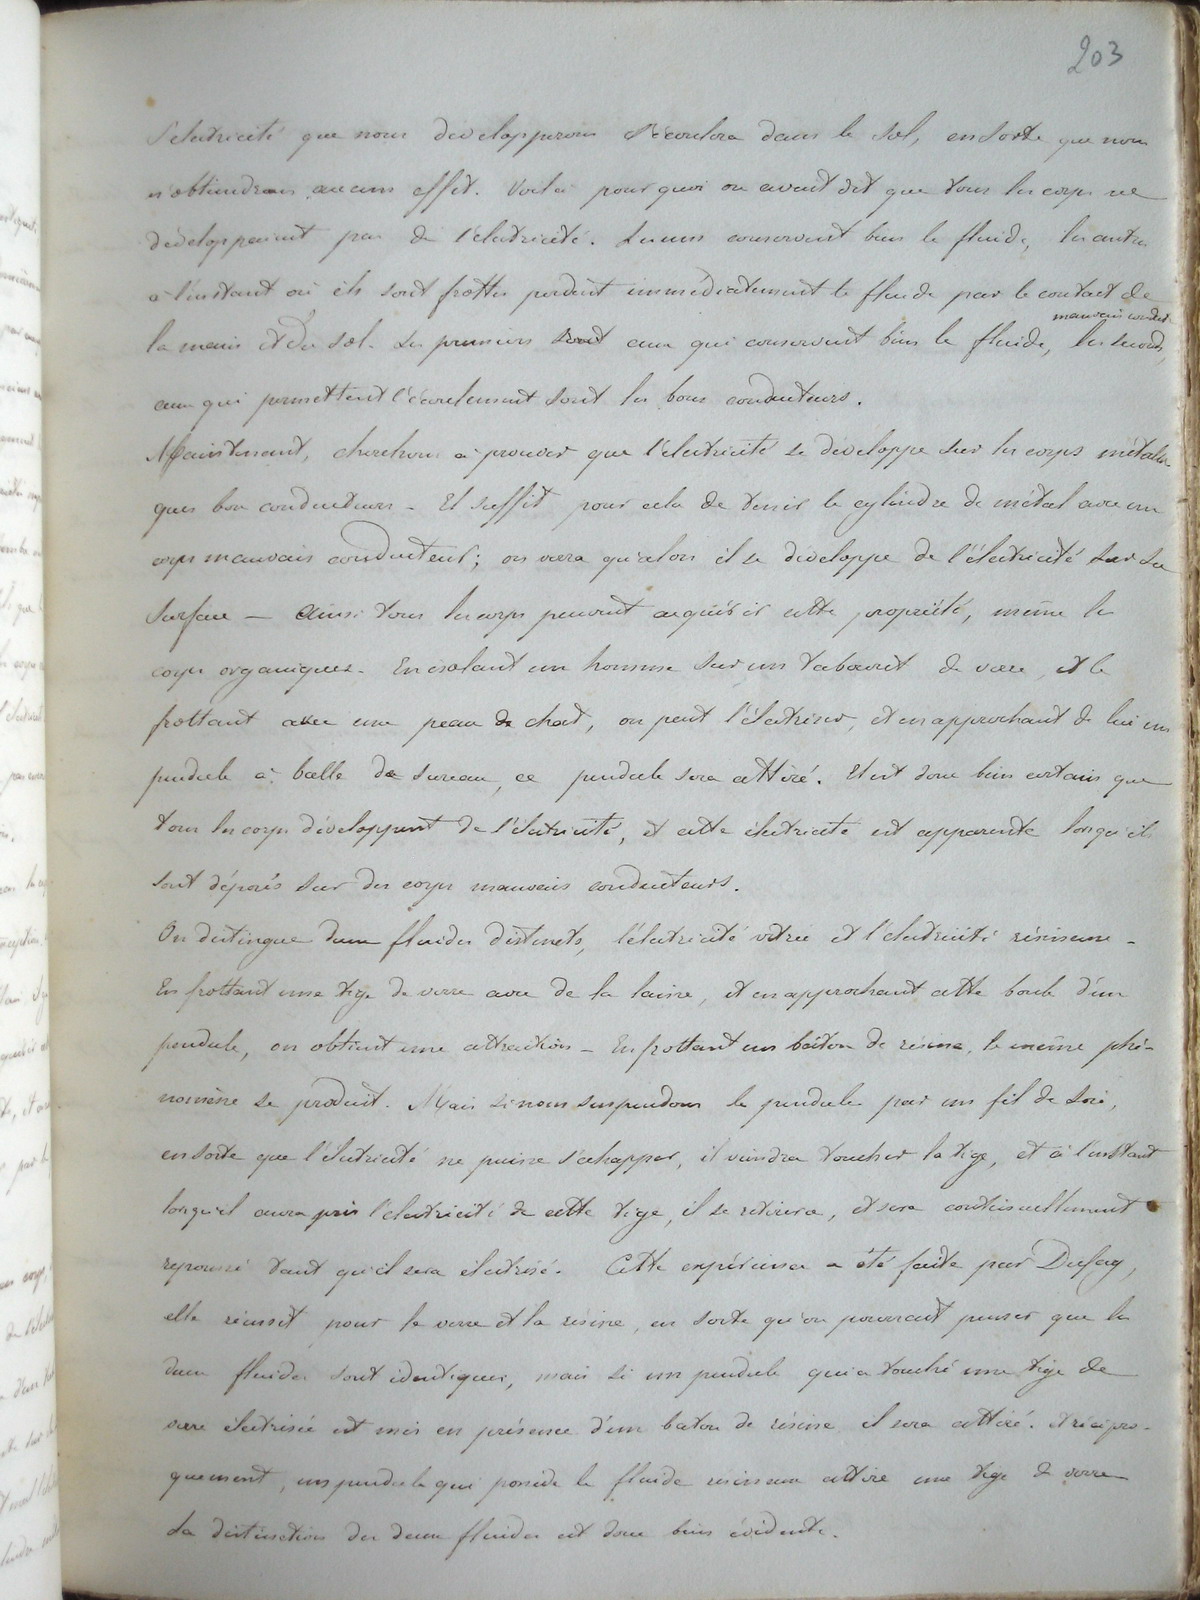 203
l'electricité que nous developperons s'écoulera dans le sol, ensorte que nous
n'obtiendrons aucun effet. Voilà pourquoi on avait dit que tous les corps ne
developpaient pas de l'électricité. Les uns conservent bien le fluide, les autres
à l'instant où ils sont frottés perdent immédiatement le fluide par le contact de
la main et du sol. Les premiers sont ceux qui conservent bien le fluide, les seconds,
mauvais conduct.
ceux qui permettent l'écoulement sont les bons conducteurs.
Maintenant, cherchons à prouver que l'électricité se développe sur les corps métalli
ques bon conducteurs - Il suffit pour cela de tenir le cylindre de métal avec un
corps mauvais conducteur; on verra qu'alors il se développe de l'électricité sur sa
surface — Ainsi tous les corps peuvent acquérir cette propriété, même les
corps organiques. En isolant un homme sur un tabouret de verre, et le
frottant avec une peau de chat, on peut l'électriser, et en approchant de lui un
pendule à balle de sureau, ce pendule sera attiré. Il est donc bien certain que
tous les corps développent de l'électricité, et cette électricité est apparente lorsqu'ils
sont déposés sur des corps mauvais conducteurs.
On distingue deux fluides distincts, l'électricité vitrée et l'électricité résineuse -
En frottant une tige de verre avec de la laine, et en approchant cette boule d'un
pendule, on obtient une attraction - En frottant un bâton de résine, le même phé-
nomène se produit. Mais si nous suspendons le pendule par un fil de soie,
ensorte que l'électricité ne puisse s'échapper, il viendra toucher la tige, et à l'instant
lorsqu'il aura pris l'electricité de cette tige, il se retirera, et sera continuellement
repoussé tant qu'il sera electrisé. Cette expérience a été faite par Dufay,
elle réussit pour le verre et la résine, en sorte qu'on pourrait penser que les
deux fluides sont identiques, mais si un pendule qui a touché une tige de
verre électrisée est mis en présence d'un baton de résine il sera attiré. Et récipro-
quement, un pendule qui possède le fluide résineux attire une tige de verre
La distinction des deux fluides est donc bien évidente.